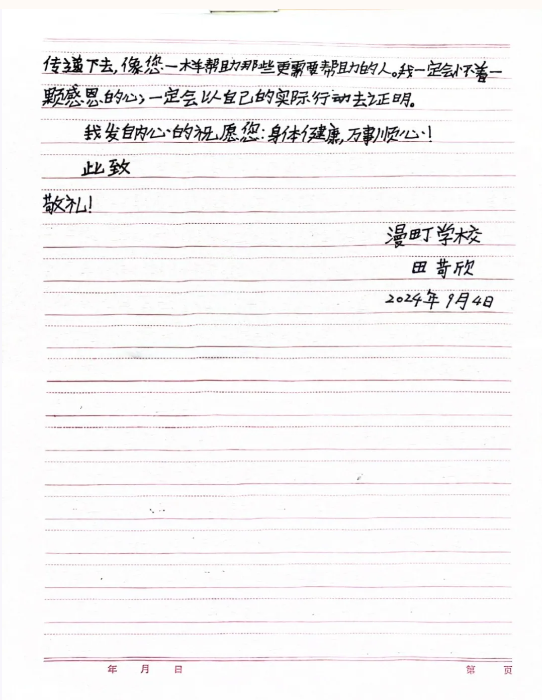 传递下去,像您一样帮助那些更需要帮助的人。我一定会怀着一
颗感恩的心,一定会以自己的实际行动去证明。
我发自内心的祝愿您:身体健康,万事顺心!
此致
敬礼!
漫町学校
田苛欣
2024年9月4日
年 月 日 第 页